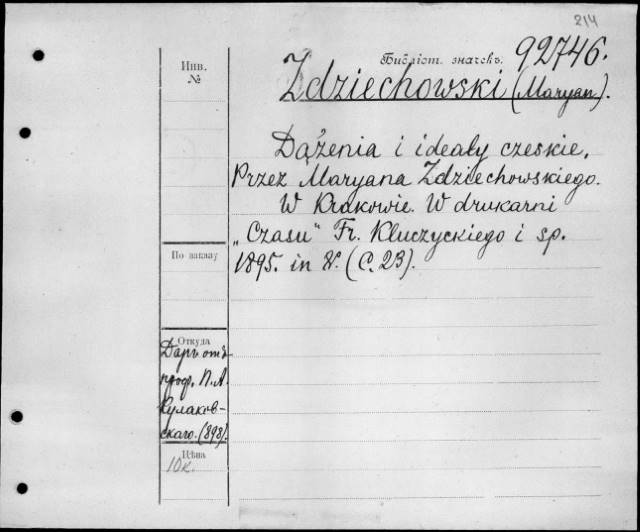 214
Инв.
№
Библіот. значекъ.
92746.
Zdziechowski (Maryan).
Dążenia i ideały czeskie.
Przez Maryana Zdziechowskiego.
W Krakowie. W drukarni
„Czasu" Fr. Kluczyckiego i sp.
1895. in 8°. (С. 23).
По заказу
Откуда
Даръ отъ
проф. П. А.
Кулаков-
скаго. (898).
Цѣна
10к.